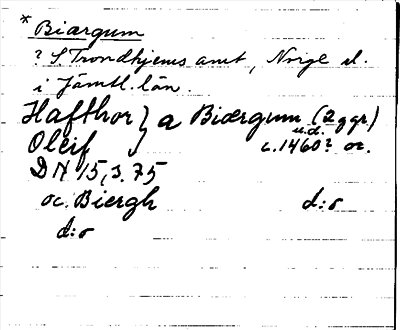 * Biærgum
? S. Trondhjems amt, Norge el.
i Jämtl. län.
Hafthor } a Biærgum (2 ggr)
Oleif u.d. c. 1460? oc.
DN 15, s. 75
oc. Biærgh d:o
d:o